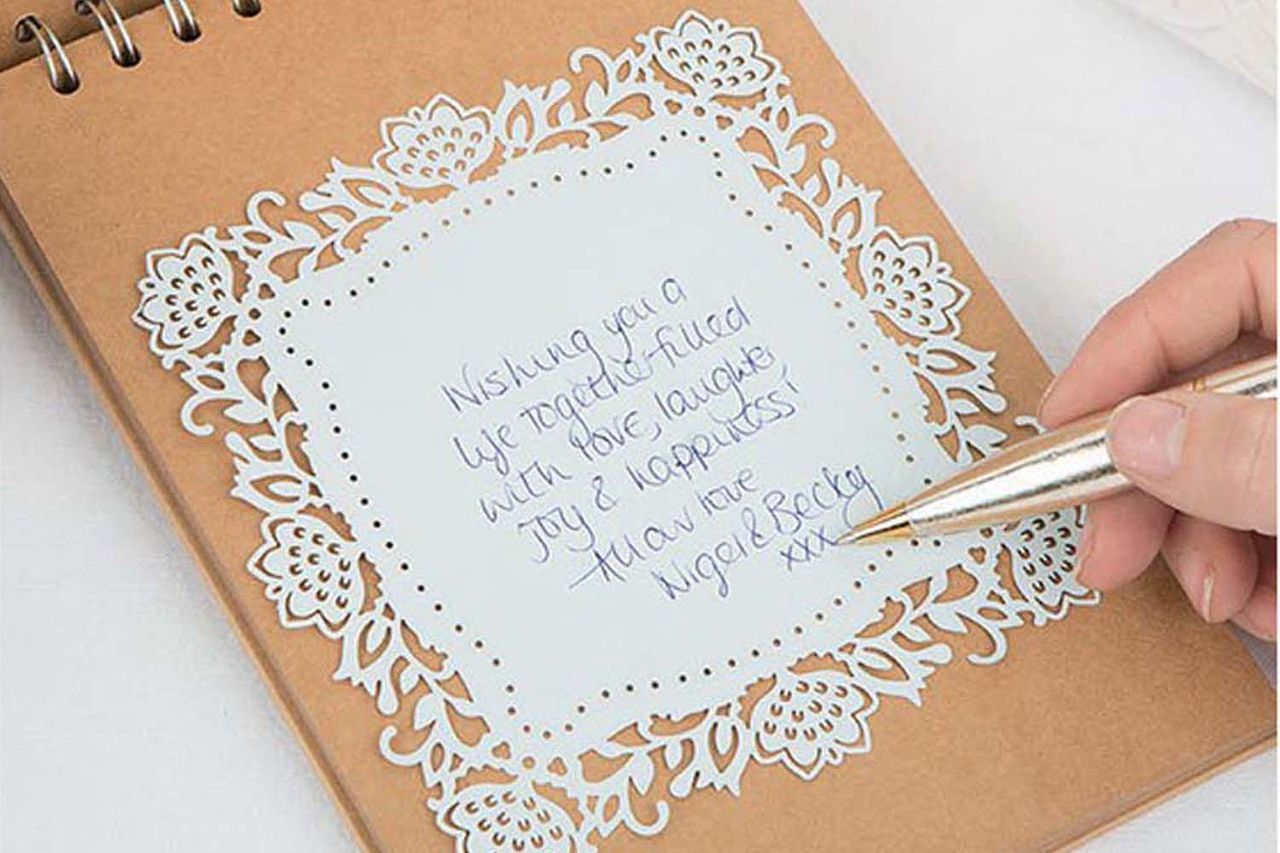 Wishing you a
life together filled
with love, laughter
joy & happiness!
All our love
Nigel & Becky
xxx